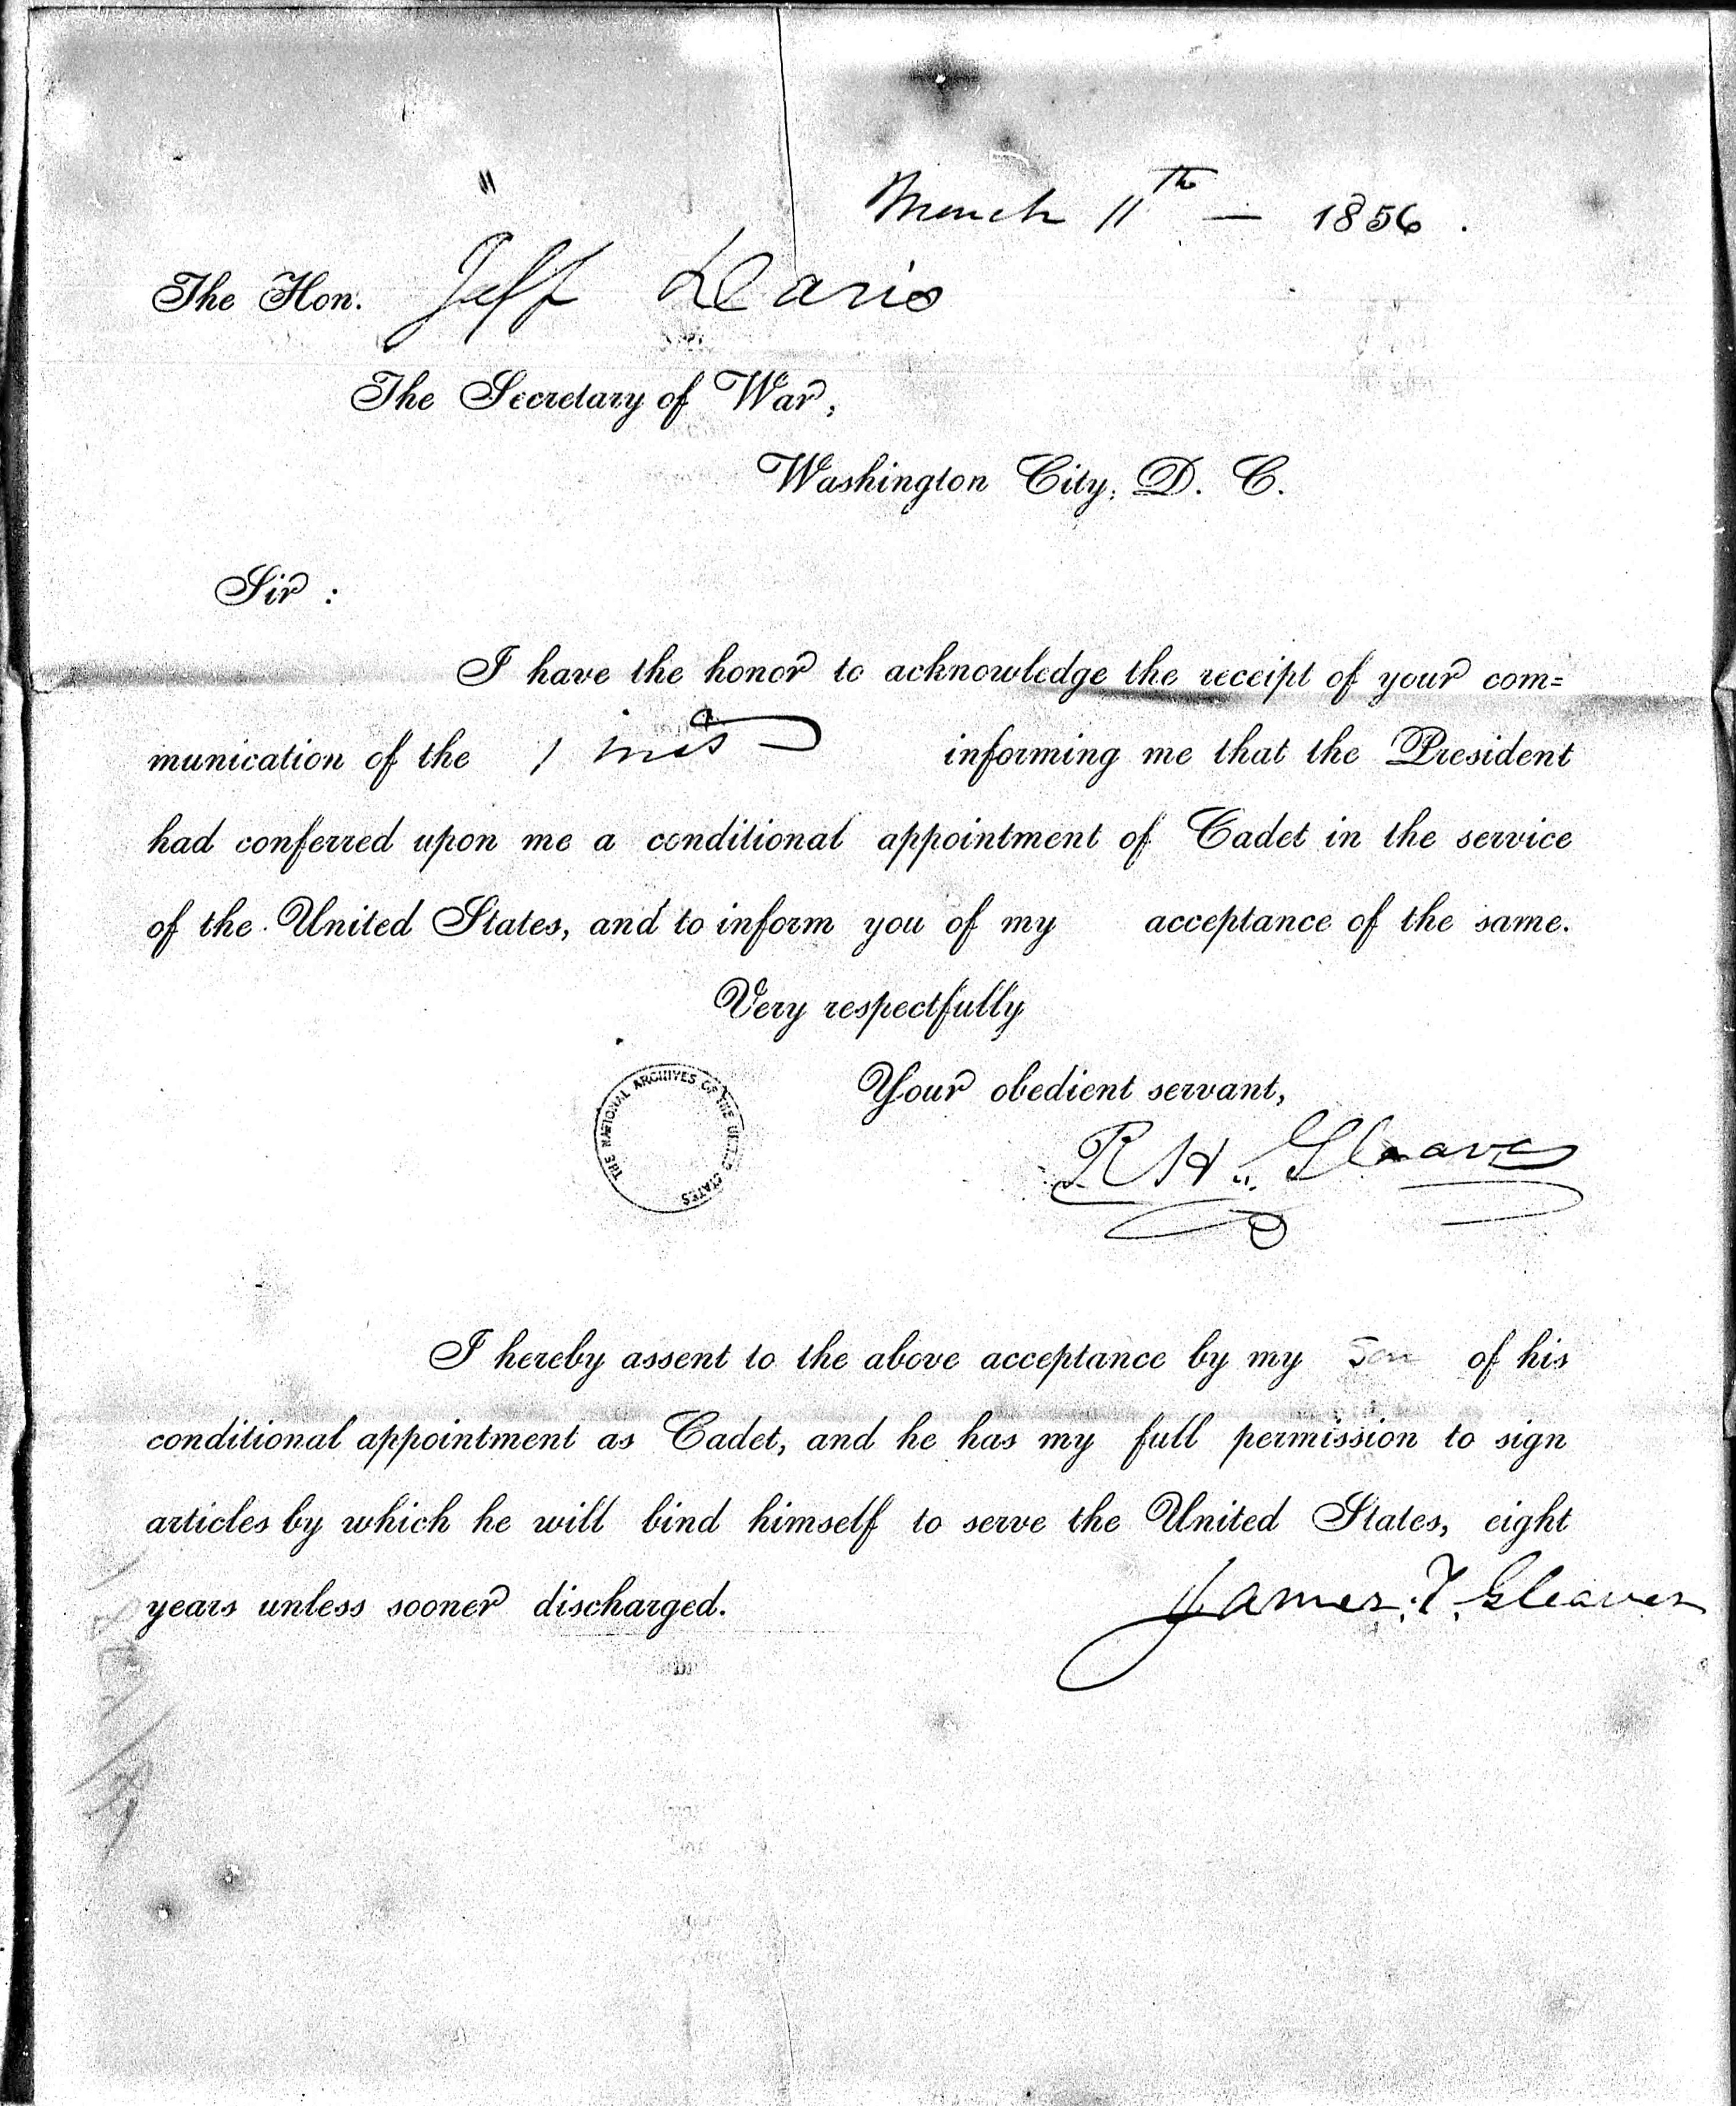 "
March 11th — 1856.
The Hon. Jeff Davis
The Secretary of War,
Washington City, D. C.
Sir :
I have the honor to acknowledge the receipt of your com=
munication of the 1 inst informing me that the President
had conferred upon me a conditional appointment of Cadet in the service
of the United States, and to inform you of my acceptance of the same.
Very respectfully
Your obedient servant,
R H Gleaves
THE NATIONAL ARCHIVES OF THE UNITED STATES
I hereby assent to the above acceptance by my Son of his
conditional appointment as Cadet, and he has my full permission to sign
articles by which he will bind himself to serve the United States, eight
years unless sooner discharged.
James. T. Gleaves